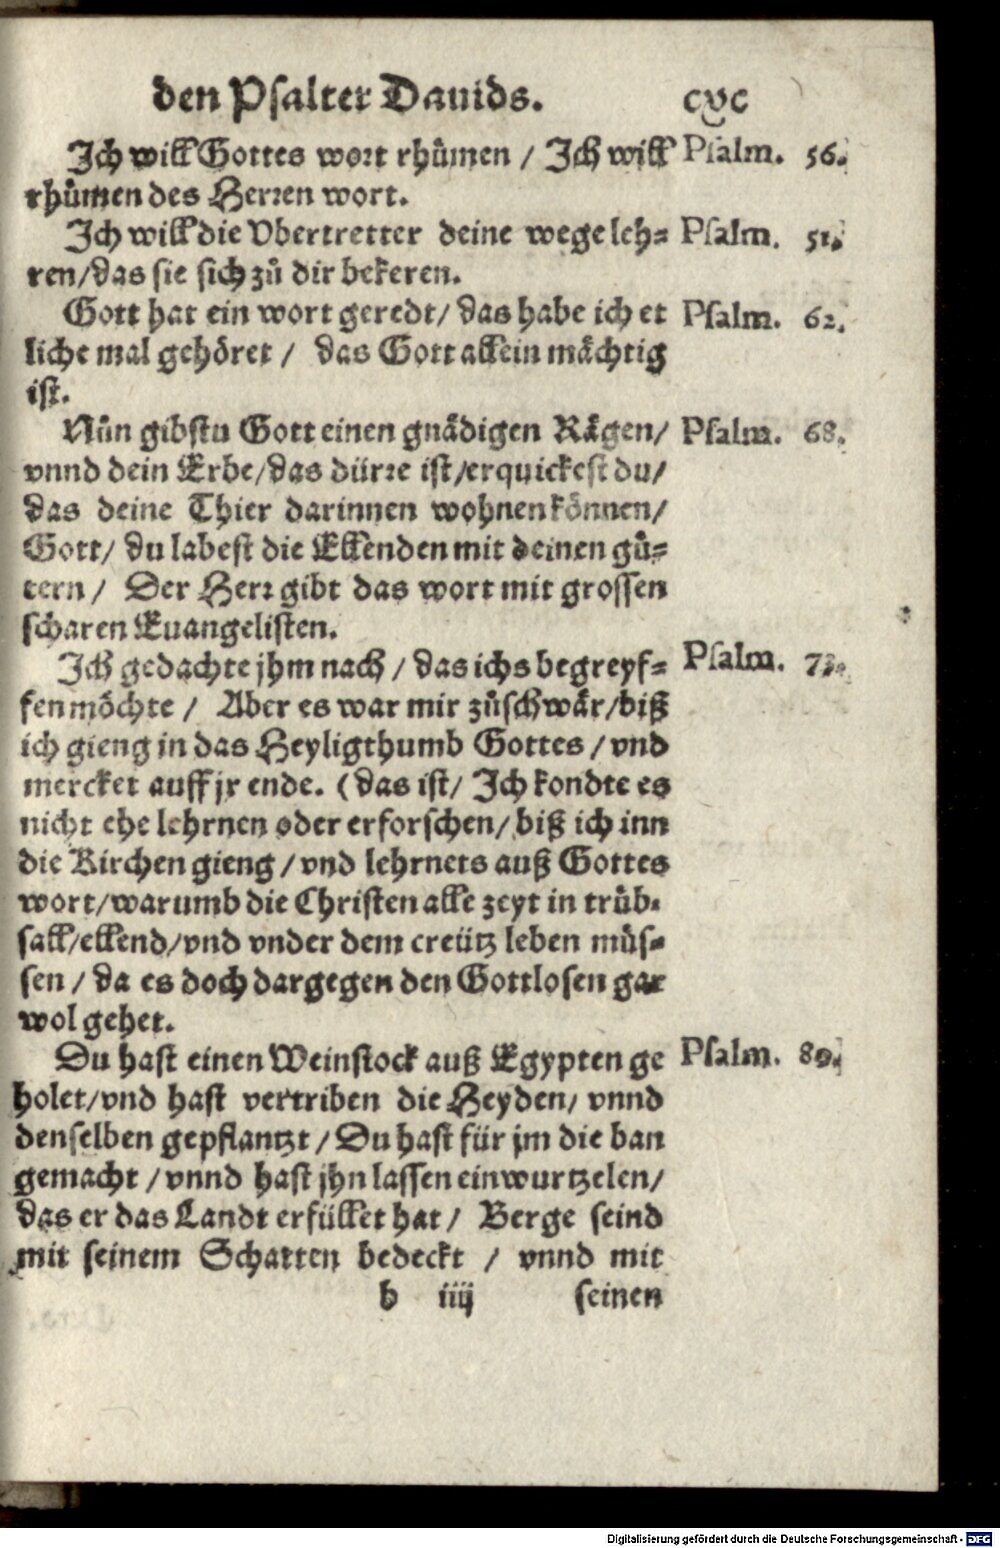 den Psalter Dauids. cxc
Ich will Gottes wort rhůmen / Ich will Psalm. 56.
rhůmen des Herren wort.
Ich will die Vbertretter deine wege leh⸗ Psalm. 51.
ren/das sie sich zů dir bekeren.
Gott hat ein wort geredt/ das habe ich et Psalm. 62.
liche mal gehöret / das Gott allein mächtig
ist.
Nůn gibstu Gott einen gnädigen Rägen/ Psalm. 68.
vnnd dein Erbe/das dürre ist/erquickest du/
das deine Thier darinnen wohnen können/
Gott/ du labest die Ellenden mit deinen gů⸗
tern / Der Herr gibt das wort mit grossen
scharen Euangelisten.
Ich gedachte jhm nach / das ichs begreyf⸗ Psalm. 73.
fen möchte / Aber es war mir zůschwär/biß
ich gieng in das Heyligthumb Gottes / vnd
mercket auff jr ende. (das ist/ Ich kondte es
nicht ehe lehrnen oder erforschen/ biß ich inn
die Kirchen gieng / vnd lehrnets auß Gottes
wort/warumb die Christen alle zeyt in trüb⸗
sall/ellend/vnd vnder dem creütz leben müs⸗
sen / da es doch dargegen den Gottlosen gar
wol gehet.
Du hast einen Weinstock auß Egypten ge Psalm. 80.
holet/vnd hast vertriben die Heyden/ vnnd
denselben gepflantzt / Du hast für jm die ban
gemacht / vnnd hast jhn lassen einwurtzelen/
das er das Landt erfüllet hat / Berge seind
mit seinem Schatten bedeckt / vnnd mit
b iiij seinen
Digitalisierung gefördert durch die Deutsche Forschungsgemeinschaft - DFG